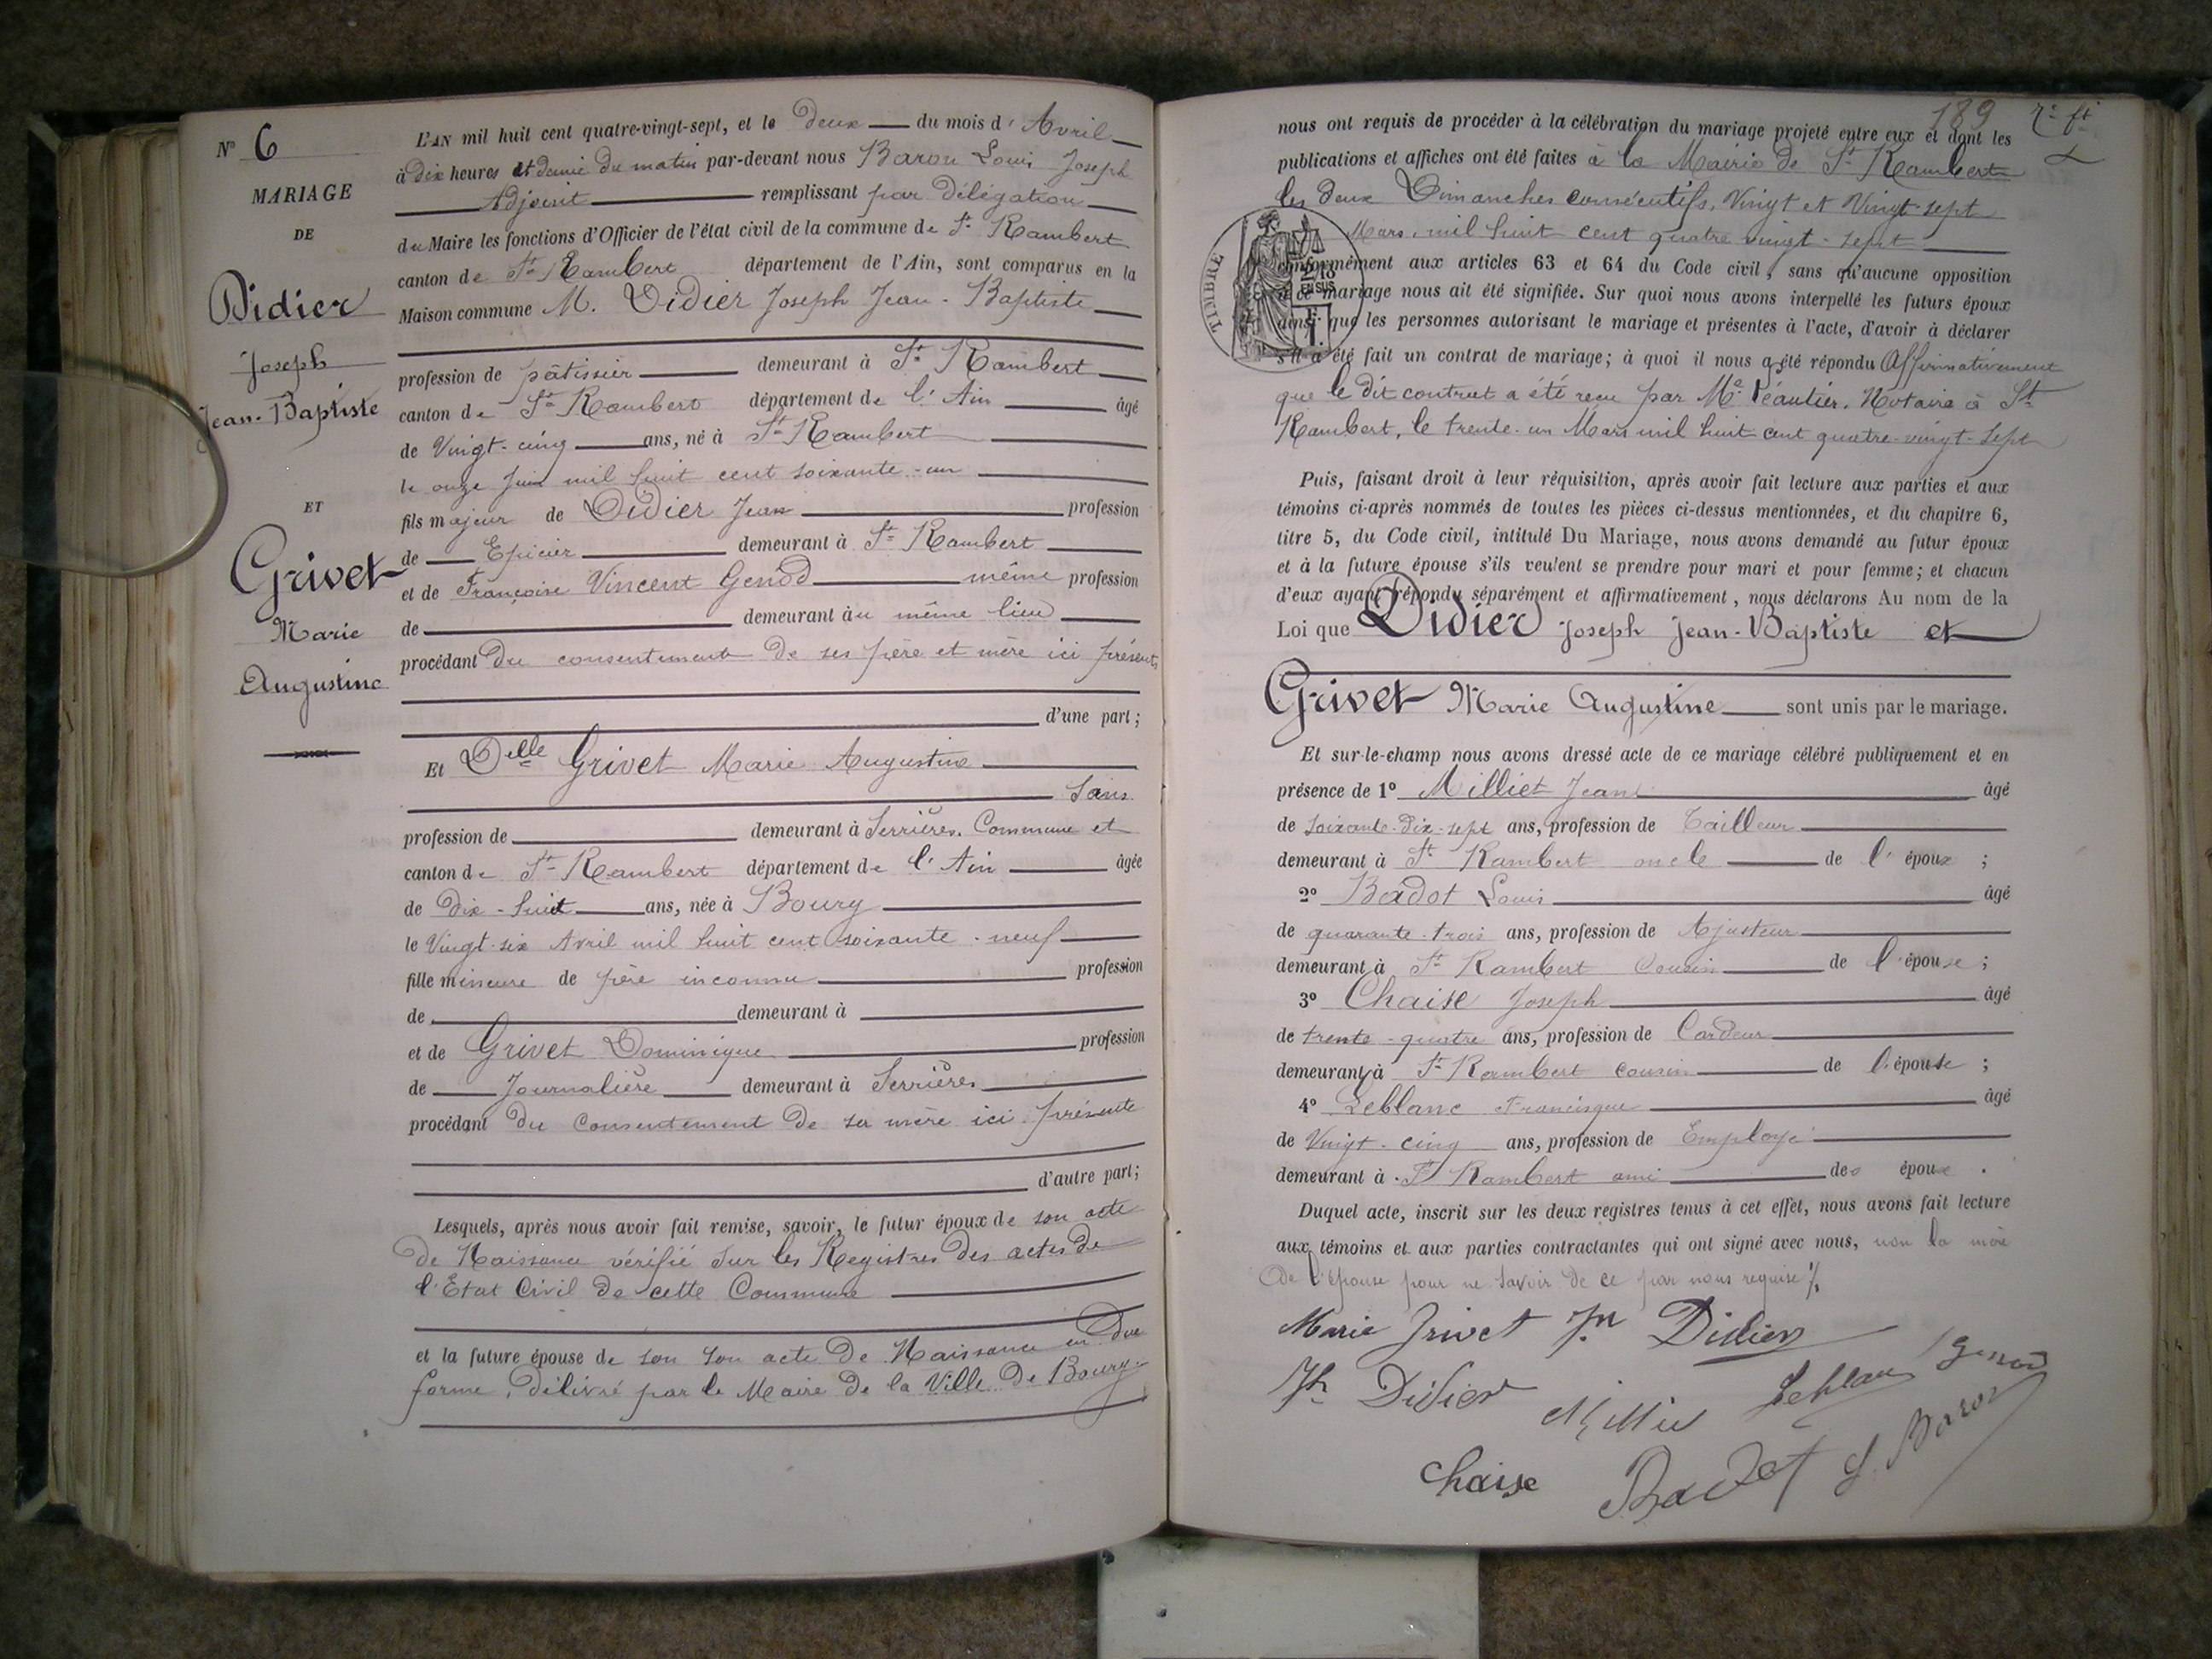 N° 6
MARIAGE
DE
Didier
Joseph
Jean-Baptiste
ET
Grivet
Marie
Augustine
L'AN mil huit cent quatre-vingt-sept, et le deux du mois d'Avril
à dix heures et demie du matin par-devant nous Baron Louis Joseph
Adjoint remplissant par délégation
du Maire les fonctions d'Officier de l'état civil de la commune de St Rambert
canton de St Rambert département de l'Ain, sont comparus en la
Maison commune M. Didier Joseph Jean-Baptiste
profession de pâtissier demeurant à St Rambert
canton de St Rambert département de l'Ain âgé
de Vingt-cinq ans, né à St Rambert
le onze Juin mil huit cent soixante-un
fils majeur de Didier Jean profession
de Epicier demeurant à St Rambert
et de Françoise Vincent Genod même profession
de demeurant au même lieu
procédant du consentement de ses père et mère ici présents
d'une part;
Et Delle Grivet Marie Augustine
Sans
profession de demeurant à Serrières. Commune et
canton de St Rambert département de l'Ain âgée
de Dix-huit ans, née à Bourg
le Vingt-six Avril mil huit cent soixante-neuf
fille mineure de père inconnu profession
de demeurant à
et de Grivet Dominique profession
de Journalière demeurant à Serrières
procédant du consentement de sa mère ici présente
d'autre part;
Lesquels, après nous avoir fait remise, savoir, le futur époux de son acte
de Naissance vérifié sur les Registres des actes de
l'Etat Civil de cette Commune
et la future épouse de son son acte de Naissance en due
forme, délivré par le Maire de la Ville de Bourg
189
nous ont requis de procéder à la célébration du mariage projeté entre eux et dont les
publications et affiches ont été faites à la Mairie de St Rambert
les deux Dimanches consécutifs, Vingt et Vingt-sept
Mars, mil huit cent quatre vingt-sept
TIMBRE
2/10
EN SUS
conformément aux articles 63 et 64 du Code civil, sans qu'aucune opposition
à ce mariage nous ait été signifiée. Sur quoi nous avons interpellé les futurs époux
ainsi que les personnes autorisant le mariage et présentes à l'acte, d'avoir à déclarer
s'il a été fait un contrat de mariage; à quoi il nous a été répondu Affirmativement
que le dit contrat a été reçu par Me Notaire à St
Rambert, le trente-un Mars mil huit cent quatre-vingt-sept
Puis, faisant droit à leur réquisition, après avoir fait lecture aux parties et aux
témoins ci-après nommés de toutes les pièces ci-dessus mentionnées, et du chapitre 6,
titre 5, du Code civil, intitulé Du Mariage, nous avons demandé au futur époux
et à la future épouse s'ils veulent se prendre pour mari et pour femme; et chacun
d'eux ayant répondu séparément et affirmativement, nous déclarons Au nom de la
Loi que Didier Joseph Jean-Baptiste et
Grivet Marie Augustine sont unis par le mariage.
Et sur-le-champ nous avons dressé acte de ce mariage célébré publiquement et en
présence de 1° Milliet Jean âgé
de soixante-dix-sept ans, profession de Tailleur
demeurant à St Rambert oncle de l'époux ;
2° Badot Louis âgé
de quarante-trois ans, profession de Ajusteur
demeurant à St Rambert Cousin de l'épouse ;
3° Chaise Joseph âgé
de trente-quatre ans, profession de Cardeur
demeurant à St Rambert cousin de l'épouse ;
4° Leblanc Francisque âgé
de Vingt-cinq ans, profession de Employé
demeurant à St Rambert ami des époux .
Duquel acte, inscrit sur les deux registres tenus à cet effet, nous avons fait lecture
aux témoins et aux parties contractantes qui ont signé avec nous, non la mère
de l'épouse pour ne savoir de ce par nous requise
Marie Grivet Jn Didier
Jh Didier Milliet Leblanc Genod
chaise Badot L. Baron